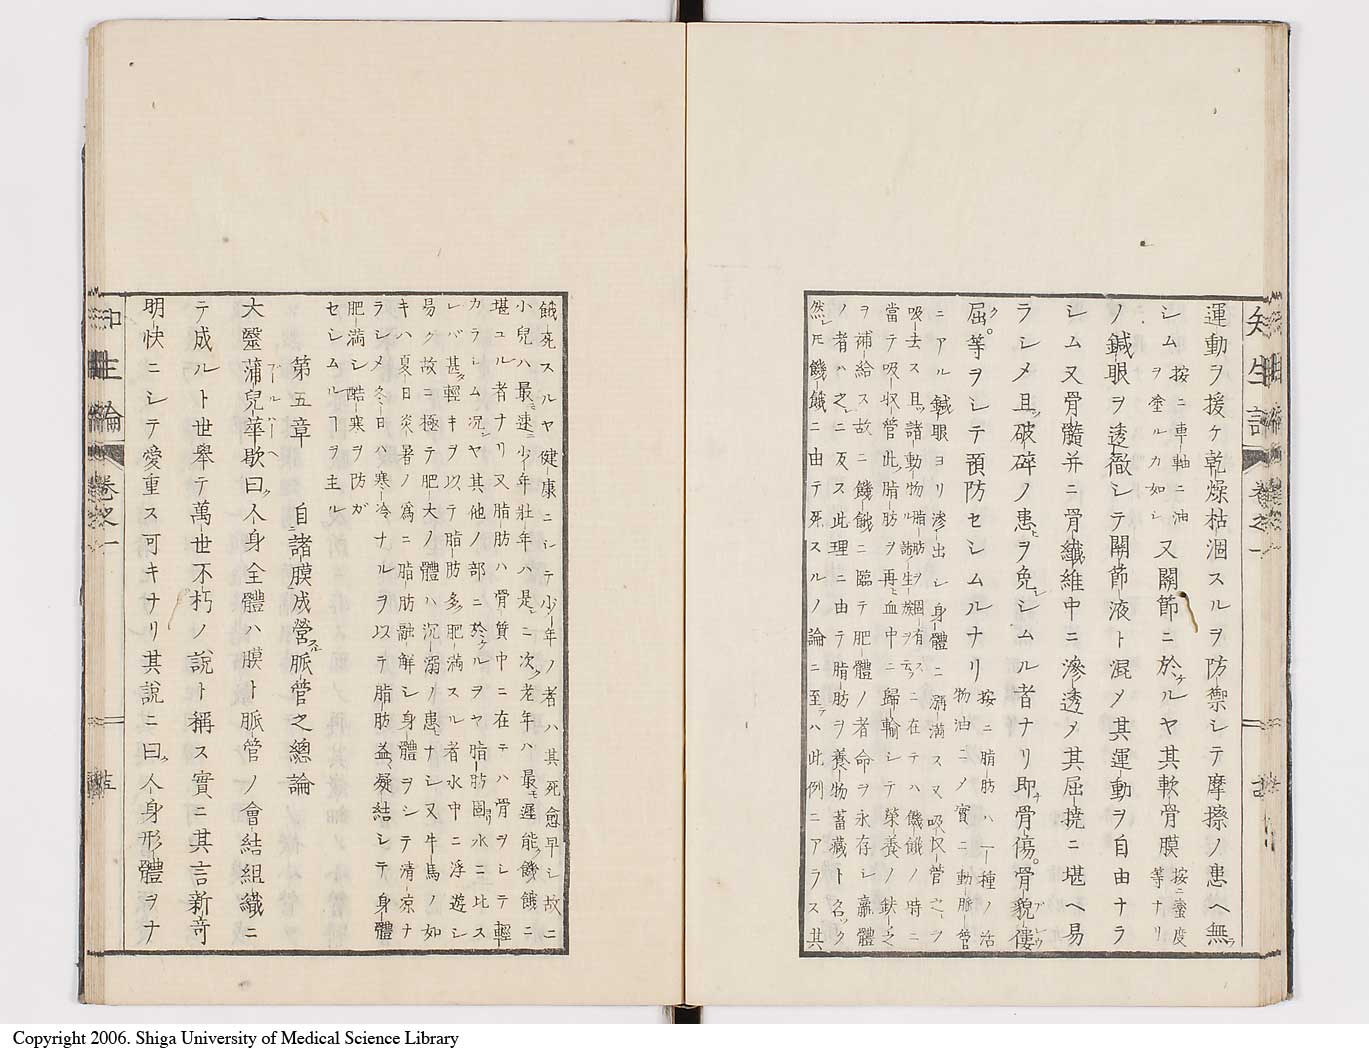 運動ヲ援ケ乾燥枯涸スルヲ防禦シテ摩擦ノ患ヘ無ラ
シム 按ニ車軸ニ油
ヲ塗ルカ如シ 又關節ニ於ケルヤ其軟骨膜 按ニ蜜度
等ナリ
ノ鍼眼ヲ透徹シテ關節液ト混メ其運動ヲ自由ナラ
シム又骨髓并ニ骨纖維中ニ滲透メ其屈撓ニ堪ヘ易
ラシメ且ツ破碎ノ患ヒヲ免レシムル者ナリ即チ骨傷。骨貌僂
屈。等ヲシテ預防セシムルナリ 按ニ脂肪ハ一種ノ活
物油ニノ實ニ動脈管
ニアル鍼眼ヨリ滲出シ身體ニ瀰滿ス又吸収管之ヲ
吸去ス且諸動物ル諸生族ヲ云フニ在テハ饑餓ノ時ニ
當テ吸収管此脂肪ヲ再ヒ血中ニ歸輸シテ榮養ノ鈌乏
ヲ補給ス故ニ饑餓ニ臨テ肥體ノ者命ヲ永存シ羸體
ノ者ハ之ニ反ス此理ニ由テ脂肪ヲ養物畜藏ト名ツク
然レ𪜈饑餓ニ由テ死スルノ論ニ至テハ此例ニアラス其
知生論 卷之一
餓死スルヤ健康ニシテ少年ノ者ハ其死愈早シ故ニ
小兒ハ最モ速ニ少年壯年ハ是ニ次ク老年ハ最モ遲ク能ク饑餓ニ
堪ユル者ナリ又脂肪ハ骨質中ニ在テハ骨ヲシテ輕
カラシム况ンヤ其他ノ部ニ於ケルヲヤ脂肪固ヨリ水ニ比ス
レバ甚タ輕キヲ以テ脂肪多ク肥滿スル者水中ニ浮遊シ
易ク故ニ極テ肥大ノ體ハ沉溺ノ患ヒナシ又牛馬ノ如
キハ夏日炎暑ノ爲ニ脂肪融解シ身體ヲシテ清凉ナ
ラシメ冬日ハ寒冷ナルヲ以テ脂肪益凝結シテ身體
肥滿シ酷寒ヲ防ガ
セシムルヿヲ主ル
第五章 自諸膜成營脈管之總論
大毉蒲兒華歇曰ク人身全體ハ膜ト脈管ノ會結組織ニ
ブールハーヘ
テ成ルト世舉テ萬世不朽ノ說ト稱ス實ニ其言新奇
明快ニシテ愛重ス可キナリ其說ニ曰ク人身形體ヲナ
知生論 卷之一
Copyright 2006. Shiga University of Medical Science Library